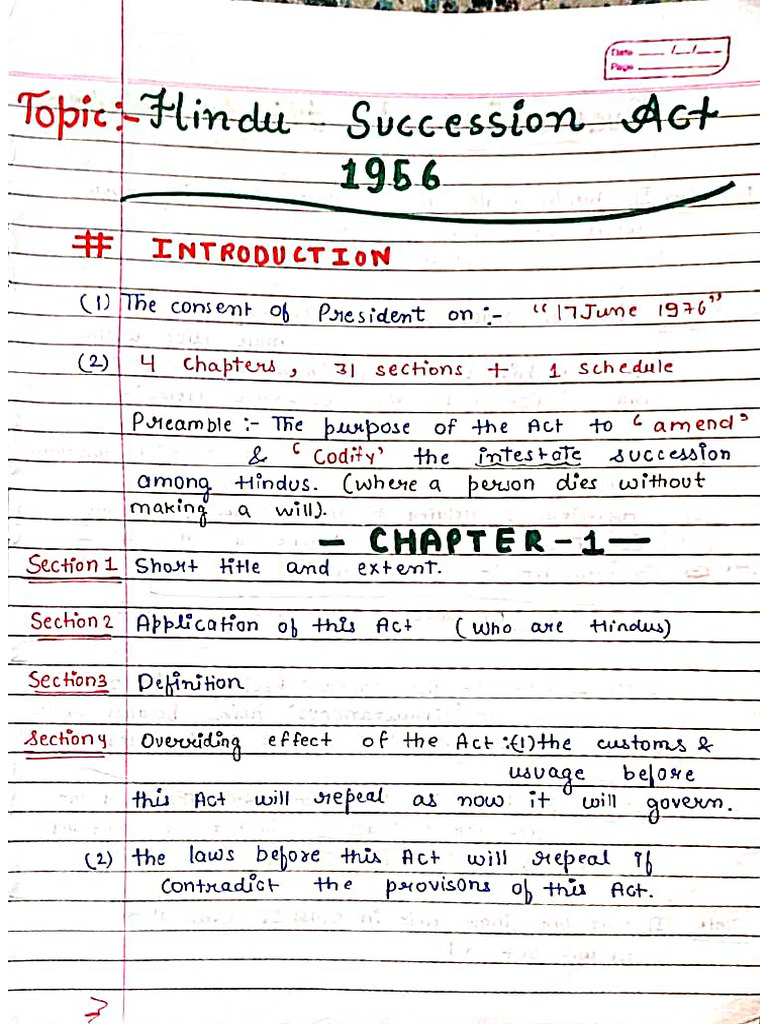 Date __/__/__
Page ______
Topic :- Hindu Succession Act
1956
# INTRODUCTION
(1) The consent of President on :- "17 June 1976"
(2) 4 chapters, 31 sections + 1 schedule
Preamble :- The purpose of the Act to 'amend'
& 'Codify' the intestate succession
among Hindus. (where a person dies without
making a will).
- CHAPTER - 1 -
Section 1 Short title and extent.
Section 2 Application of this Act (who are Hindus)
Section 3 Definition
Section 4 Overriding effect of the Act :- (1) the customs &
usuage before
this Act will repeal as now it will govern.
(2) the laws before this Act will repeal if
contradict the provisons of this Act.